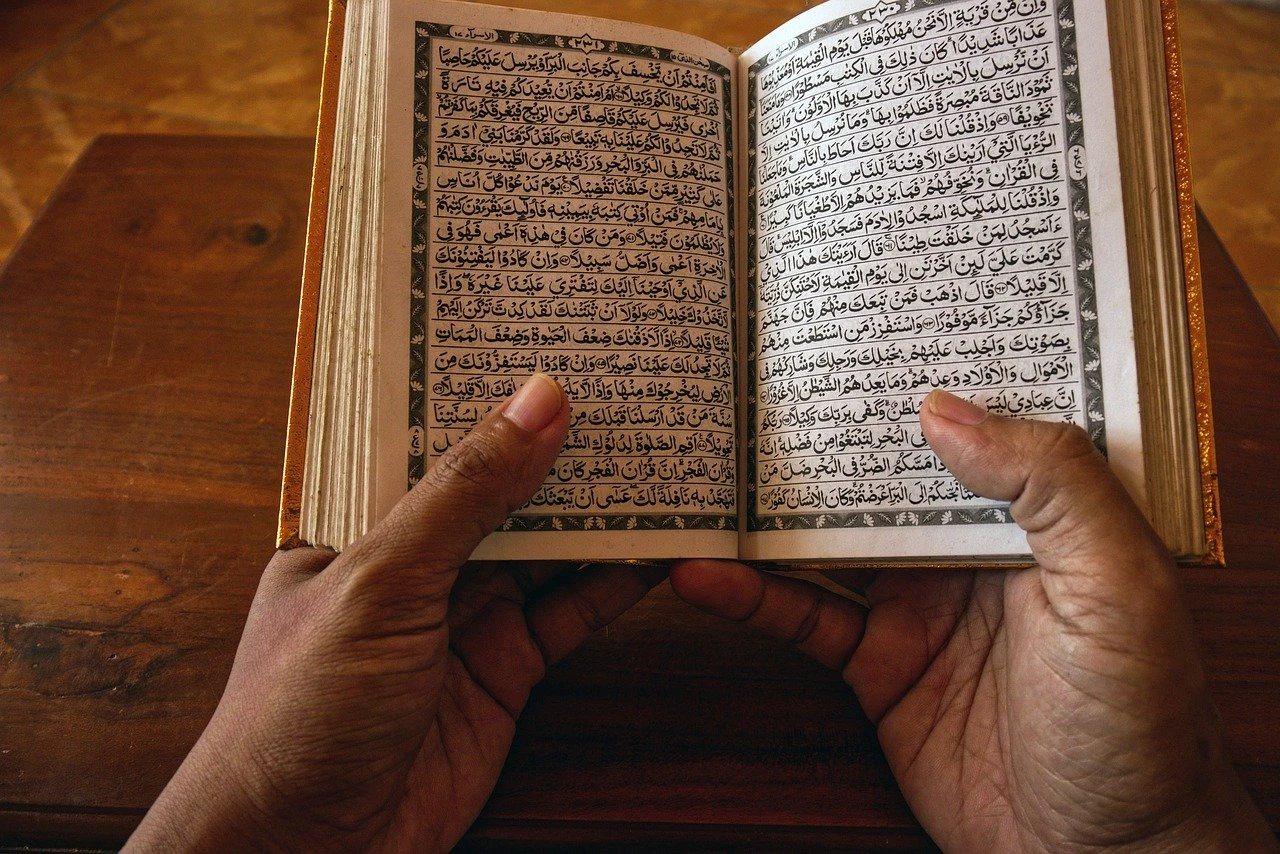 ٢٣٠
الاسراء ١٧
وَاِنْ مِّنْ قَرْيَةٍ اِلَّا نَحْنُ مُهْلِكُوْهَا قَبْلَ يَوْمِ الْقِيٰمَةِ اَوْ مُعَذِّبُوْهَا
عَذَابًا شَدِيْدًا كَانَ ذٰلِكَ فِى الْكِتٰبِ مَسْطُوْرًا ۝٥٨ وَمَا مَنَعَنَا
اَنْ نُّرْسِلَ بِالْاٰيٰتِ اِلَّا اَنْ كَذَّبَ بِهَا الْاَوَّلُوْنَ وَاٰتَيْنَا
ثَمُوْدَ النَّاقَةَ مُبْصِرَةً فَظَلَمُوْا بِهَا وَمَا نُرْسِلُ بِالْاٰيٰتِ اِلَّا
تَخْوِيْفًا ۝٥٩ وَاِذْ قُلْنَا لَكَ اِنَّ رَبَّكَ اَحَاطَ بِالنَّاسِ وَمَا جَعَلْنَا
الرُّءْيَا الَّتِيْٓ اَرَيْنٰكَ اِلَّا فِتْنَةً لِّلنَّاسِ وَالشَّجَرَةَ الْمَلْعُوْنَةَ
فِى الْقُرْاٰنِ وَنُخَوِّفُهُمْ فَمَا يَزِيْدُهُمْ اِلَّا طُغْيَانًا كَبِيْرًا ۝٦٠
وَاِذْ قُلْنَا لِلْمَلٰٓئِكَةِ اسْجُدُوْا لِاٰدَمَ فَسَجَدُوْٓا اِلَّآ اِبْلِيْسَ قَالَ
ءَاَسْجُدُ لِمَنْ خَلَقْتَ طِيْنًا ۝٦١ قَالَ اَرَءَيْتَكَ هٰذَا الَّذِيْ
كَرَّمْتَ عَلَيَّ لَئِنْ اَخَّرْتَنِ اِلٰى يَوْمِ الْقِيٰمَةِ لَاَحْتَنِكَنَّ ذُرِّيَّتَهٗٓ
اِلَّا قَلِيْلًا ۝٦٢ قَالَ اذْهَبْ فَمَنْ تَبِعَكَ مِنْهُمْ فَاِنَّ جَهَنَّمَ
جَزَآؤُكُمْ جَزَآءً مَّوْفُوْرًا ۝٦٣ وَاسْتَفْزِزْ مَنِ اسْتَطَعْتَ مِنْهُمْ
بِصَوْتِكَ وَاَجْلِبْ عَلَيْهِمْ بِخَيْلِكَ وَرَجِلِكَ وَشَارِكْهُمْ فِى
الْاَمْوَالِ وَالْاَوْلَادِ وَعِدْهُمْ وَمَا يَعِدُهُمُ الشَّيْطٰنُ اِلَّا غُرُوْرًا ۝٦٤
اِنَّ عِبَادِيْ لَيْسَ سُلْطٰنٌ وَكَفٰى بِرَبِّكَ وَكِيْلًا ۝٦٥ رَبُّكُمُ
فِى الْبَحْرِ لِتَبْتَغُوْا مِنْ فَضْلِهٖ اِنَّهٗ
مَسَّكُمُ الضُّرُّ فِى الْبَحْرِ ضَلَّ مَنْ
اِلَى الْبَرِّ اَعْرَضْتُمْ وَكَانَ الْاِنْسَانُ كَفُوْرًا ۝٦٧
٢٣١
الاسراء ١٧
اَفَاَمِنْتُمْ اَنْ يَّخْسِفَ بِكُمْ جَانِبَ الْبَرِّ اَوْ يُرْسِلَ عَلَيْكُمْ حَاصِبًا
ثُمَّ لَا تَجِدُوْا لَكُمْ وَكِيْلًا ۝٦٨ اَمْ اَمِنْتُمْ اَنْ يُّعِيْدَكُمْ فِيْهِ تَارَةً
اُخْرٰى فَيُرْسِلَ عَلَيْكُمْ قَاصِفًا مِّنَ الرِّيْحِ فَيُغْرِقَكُمْ بِمَا كَفَرْتُمْ
ثُمَّ لَا تَجِدُوْا لَكُمْ عَلَيْنَا بِهٖ تَبِيْعًا ۝٦٩ وَلَقَدْ كَرَّمْنَا بَنِيْٓ اٰدَمَ وَ
حَمَلْنٰهُمْ فِى الْبَرِّ وَالْبَحْرِ وَرَزَقْنٰهُمْ مِّنَ الطَّيِّبٰتِ وَفَضَّلْنٰهُمْ
عَلٰى كَثِيْرٍ مِّمَّنْ خَلَقْنَا تَفْضِيْلًا ۝٧٠ يَوْمَ نَدْعُوْا كُلَّ اُنَاسٍۢ
بِاِمَامِهِمْ فَمَنْ اُوْتِيَ كِتٰبَهٗ بِيَمِيْنِهٖ فَاُولٰٓئِكَ يَقْرَءُوْنَ كِتٰبَهُمْ
وَلَا يُظْلَمُوْنَ فَتِيْلًا ۝٧١ وَمَنْ كَانَ فِيْ هٰذِهٖٓ اَعْمٰى فَهُوَ فِى
الْاٰخِرَةِ اَعْمٰى وَاَضَلُّ سَبِيْلًا ۝٧٢ وَاِنْ كَادُوْا لَيَفْتِنُوْنَكَ
عَنِ الَّذِيْٓ اَوْحَيْنَآ اِلَيْكَ لِتَفْتَرِيَ عَلَيْنَا غَيْرَهٗ وَاِذًا
لَّاتَّخَذُوْكَ خَلِيْلًا ۝٧٣ وَلَوْلَآ اَنْ ثَبَّتْنٰكَ لَقَدْ كِدْتَّ تَرْكَنُ اِلَيْهِمْ
شَيْـًٔا قَلِيْلًا ۝٧٤ اِذًا لَّاَذَقْنٰكَ ضِعْفَ الْحَيٰوةِ وَضِعْفَ الْمَمَاتِ
ثُمَّ لَا تَجِدُ لَكَ عَلَيْنَا نَصِيْرًا ۝٧٥ وَاِنْ كَادُوْا لَيَسْتَفِزُّوْنَكَ مِنَ
الْاَرْضِ لِيُخْرِجُوْكَ مِنْهَا وَاِذًا لَّا اِلَّا قَلِيْلًا ۝٧٦
سُنَّةَ مَنْ قَدْ اَرْسَلْنَا قَبْلَكَ مِنْ لِسُنَّتِنَا
تَحْوِيْلًا ۝٧٧ اَقِمِ الصَّلٰوةَ لِدُلُوْكِ الشَّمْسِ
وَقُرْاٰنَ الْفَجْرِ اِنَّ قُرْاٰنَ الْفَجْرِ كَانَ
فَتَهَجَّدْ بِهٖ نَافِلَةً لَّكَ عَسٰٓى اَنْ يَّبْعَثَكَ